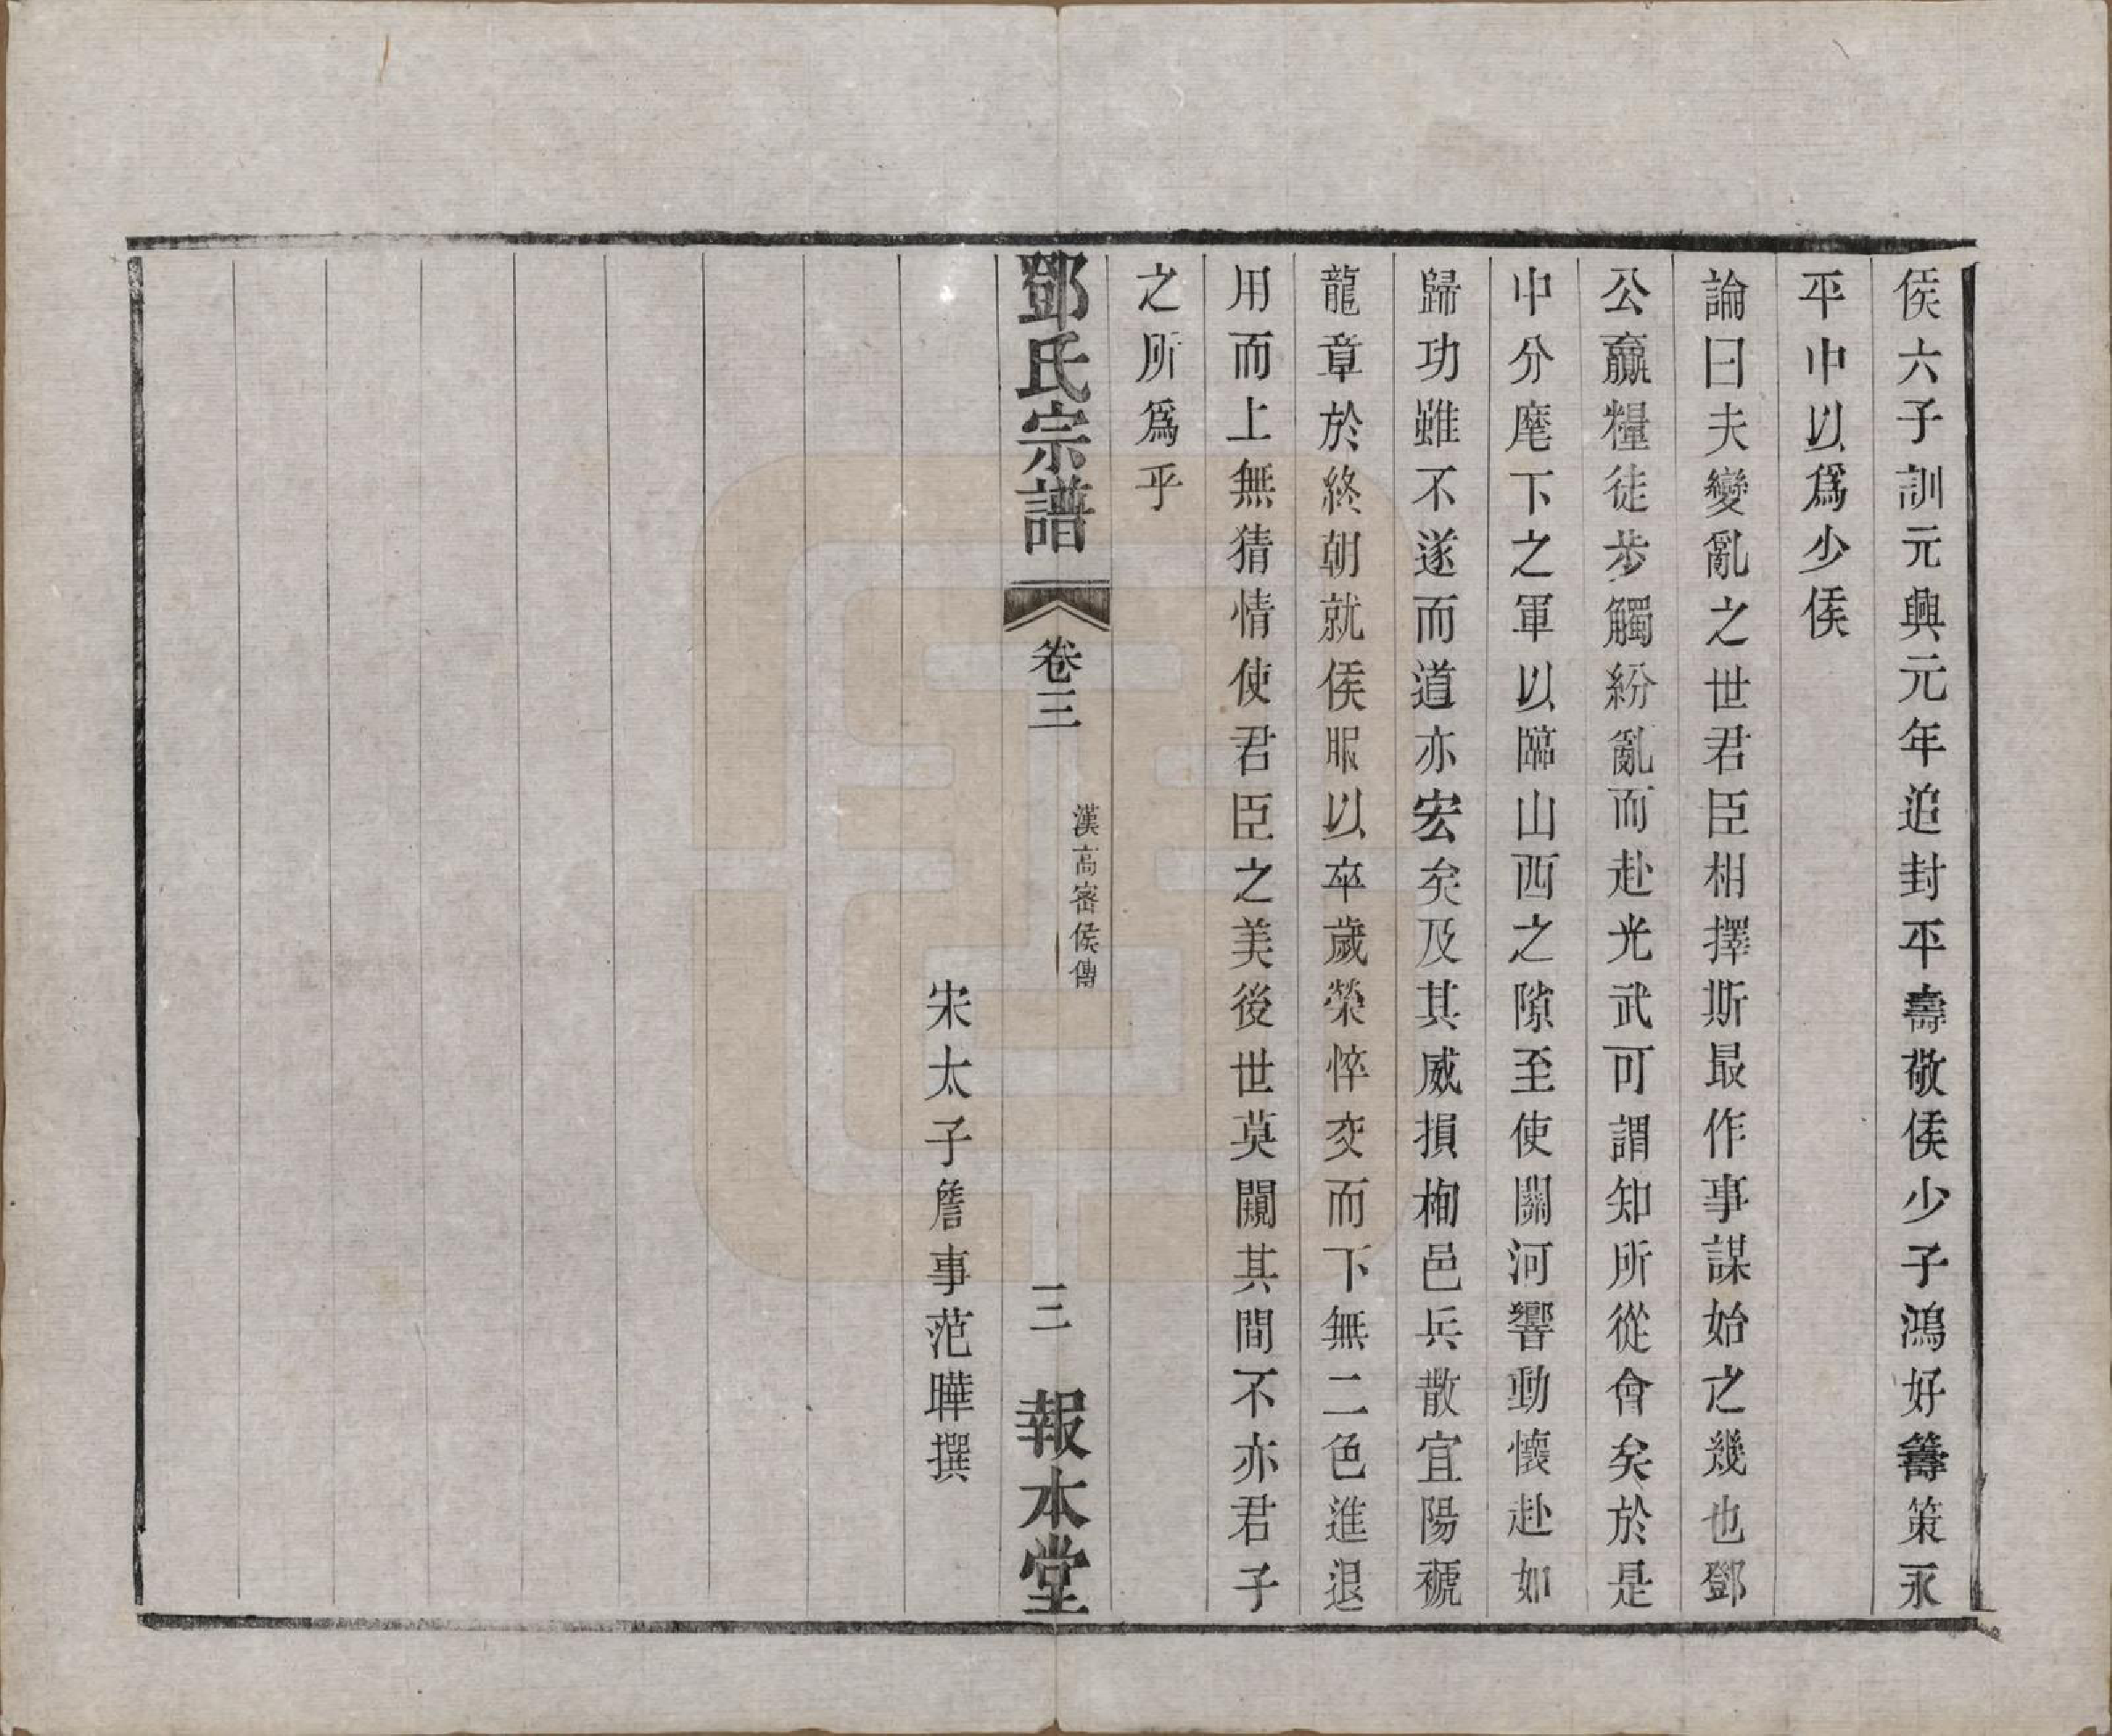 侯六子訓元興元年追封平壽敬侯少子鴻好籌策永
平中以爲少侯
論曰夫變亂之世君臣相擇斯最作事謀始之幾也鄧
公嬴糧徒步觸紛亂而赴光武可謂知所從會矣於是
中分麾下之軍以臨山西之隙至使關河響動懷赴如
歸功雖不遂而道亦宏矣及其威損栒邑兵散宜陽褫
龍章於終朝就侯服以卒歲榮悴交而下無二色進退
用而上無猜情使君臣之美後世莫闚其間不亦君子
之所爲乎
鄧氏宗譜
卷三
漢高密侯傳
三
報本堂
宋太子詹事范曄撰